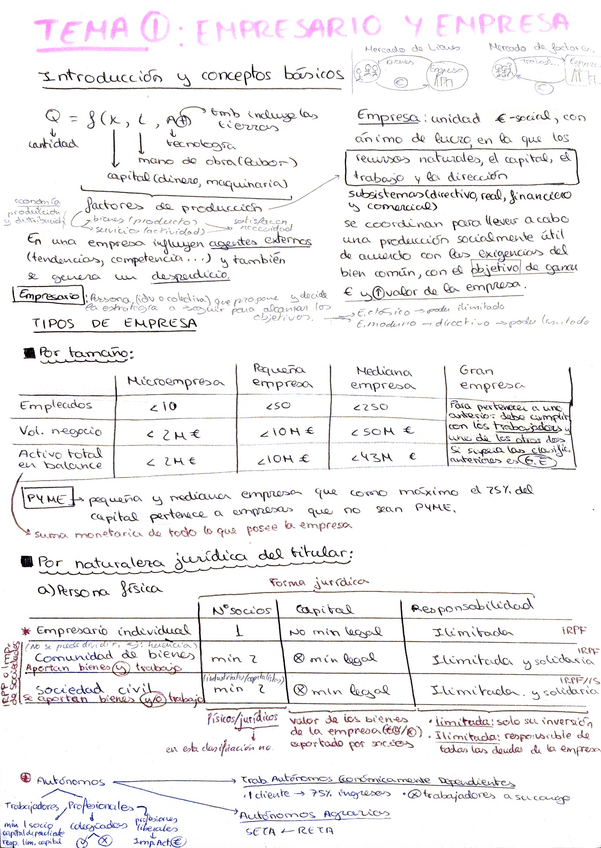 TEMA ①: EMPRESARIO Y EMPRESA
Mercado de
Mercado de factores
Introducción y conceptos básicos
bienes
Empresa
Q = f(K, L, A(t))
tmb incluye las tierras
cantidad
tecnología
mano de obra (labor)
capital (dinero, maquinaria)
factores de producción
economía
producción
y distribución
bienes (productos)
servicios (actividad)
satisfacen
necesidad
En una empresa influyen agentes externos
(tendencias, competencia...) y también
se genera un desperdicio.
Empresa: unidad €-social, con
ánimo de lucro, en la que los
recursos naturales, el capital, el
trabajo y la dirección
subsistemas (directivo, real, financiero
y comercial)
se coordinan para llevar a cabo
una producción socialmente útil
de acuerdo con las exigencias del
bien común, con el objetivo de ganar
€ y ↑ valor de la empresa.
Empresario: Persona (idv o colectiva) que propone y decide
la estrategia a seguir para alcanzar los
objetivos.
E. clásico → poder ilimitado
E. moderno → directivo → poder limitado
TIPOS DE EMPRESA
Por tamaño:
Microempresa Pequeña empresa Mediana empresa Gran empresa
Empleados <10 <50 <250
Vol. negocio <2M € <10M € <50M €
Activo total en balance <2M € <10M € <43M €
Para pertenecer a una
anterior: debe cumplir
con los trabajadores y
uno de los otros dos
Si supera las clasific.
anteriores es G.E
PYME → pequeña y mediana empresa que como máximo el 25% del
capital pertenece a empresas que no sean PYME.
suma monetaria de todo lo que posee la empresa
Por naturaleza jurídica del titular:
Forma jurídica
a) Persona física
Nº socios Capital Responsabilidad
* Empresario individual 1 No mín legal Ilimitada IRPF
(No se puede dividir, ej: herencia)
Comunidad de bienes mín 2 ⊗ mín legal Ilimitada y solidaria IRPF
Aportan bienes y trabajo
(industriales/capitalistas)
Sociedad civil mín 2 ⊗ mín legal Ilimitada y solidaria IRPF/IS
Se aportan bienes y/o trabajo
Físicos/jurídicos
en esta clasificación no
valor de los bienes
de la empresa
aportado por socios
• Limitada: solo su inversión
• Ilimitada: responsible de
todas las deudas de la empresa
Autónomos
Trabajadores Profesionales
mín 1 socio
resp. lim. capital
colegiados
profesiones
liberales
Imp. Act €
Trab. Autónomos Económicamente Dependientes
• 1 cliente → 75% ingresos • ⊗ trabajadores a su cargo
Autónomos Agrarios
SETA ← RETA